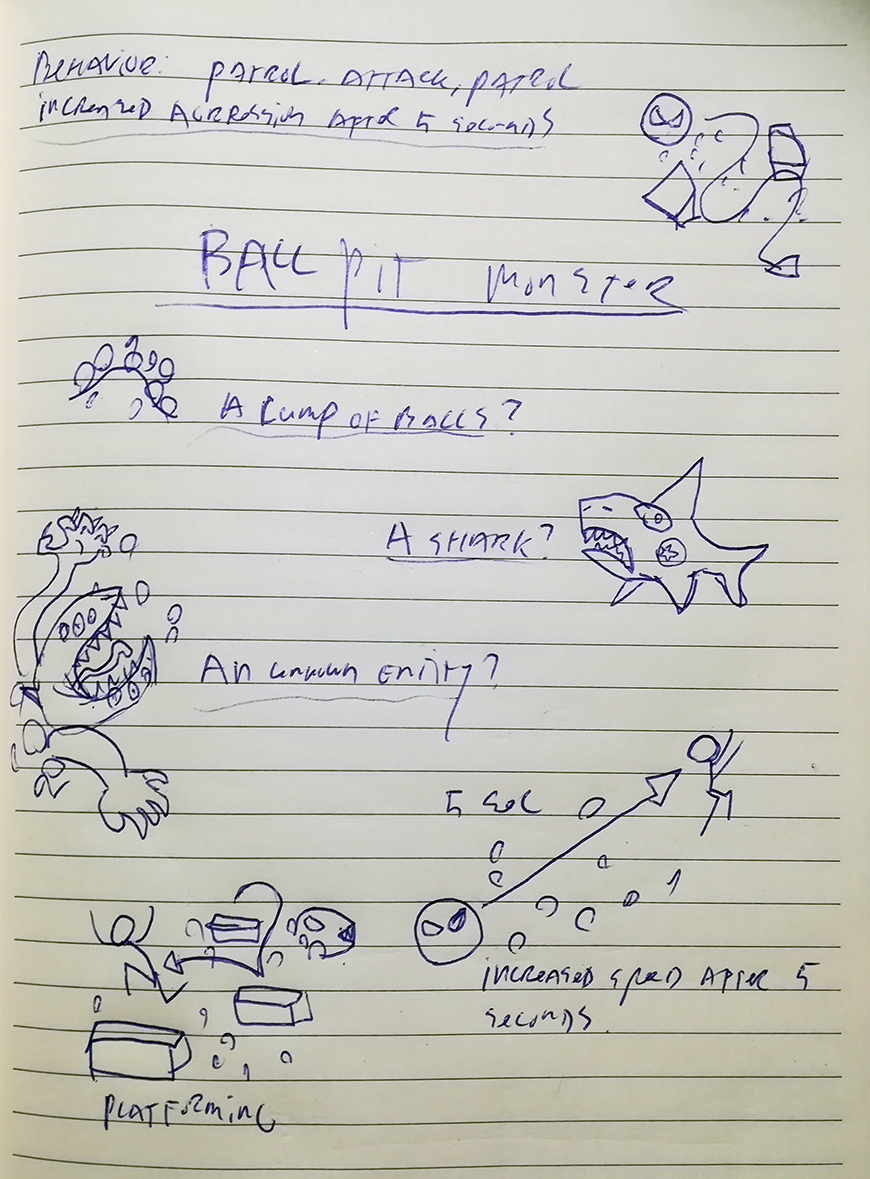 BEHAVIOR: PATROL, ATTACK, PATROL
INCREASED AGRRESSION AFTER 5 SECONDS
BALL PIT MONSTER
A LUMP OF BALLS?
A SHARK?
An unknown ENTITY?
5 SEC
INCREASED SPEED AFTER 5
SECONDS.
PLATFORMING